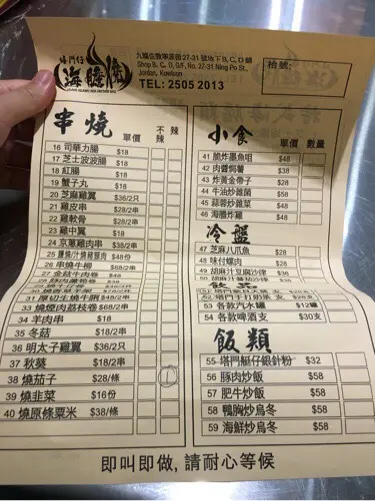 塔門仔
海膽燒
九龍佐敦寧波街27-31號地下B, C, D舖
Shop B, C, D, G/F, No. 27-31 Ning Po St.,
Jordan, Kowloon
TEL: 2505 2013
枱號:
串燒 單價 不辣 辣
16 司華力腸 $18
17 芝士波波腸 $18
18 紅腸 $18
19 蟹子丸 $18
20 芝麻雞翼 $36/2只
21 雞皮串 $28/2串
22 雞軟骨 $28/2串
23 雞中翼 $18
24 京蔥雞肉串 $38/2串
27
30
31 厚切生燒牛脷
33 燒煙肉荔枝卷 $68/2串
34 羊肉串 $18
35 冬菇 $18/2串
36 明太子雞翼 $36/2只
37 秋葵 $18/2串
38 燒茄子 $28/條
39 燒韮菜 $16份
40 燒原條粟米 $38/條
小食 單價 數量
41 脆炸墨魚咀 $48
42 肉醬焗薯 $38
43 炸黃金帶子 $28
44 牛油炒雜菌 $58
45 蒜蓉炒雜菜 $48
46 海膽炸雞 $48
冷盤
47 芝麻八爪魚 $28
48 味付螺肉 $28
49 胡麻汁豆腐沙律 $36
53 各款汽水罐 $12罐
54 各款啤酒支 $30支
飯類
55 塔門艇仔銀針粉 $32
56 豚肉炒飯 $58
57 肥牛炒飯 $58
58 鴨胸炒烏冬 $58
59 海鮮炒烏冬 $58
即叫即做, 請耐心等候